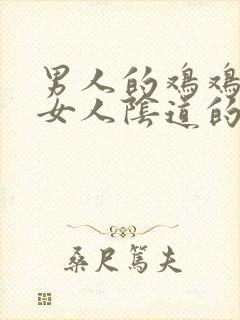 男人的鸡鸡
女人阴道的
桑尺篤夫